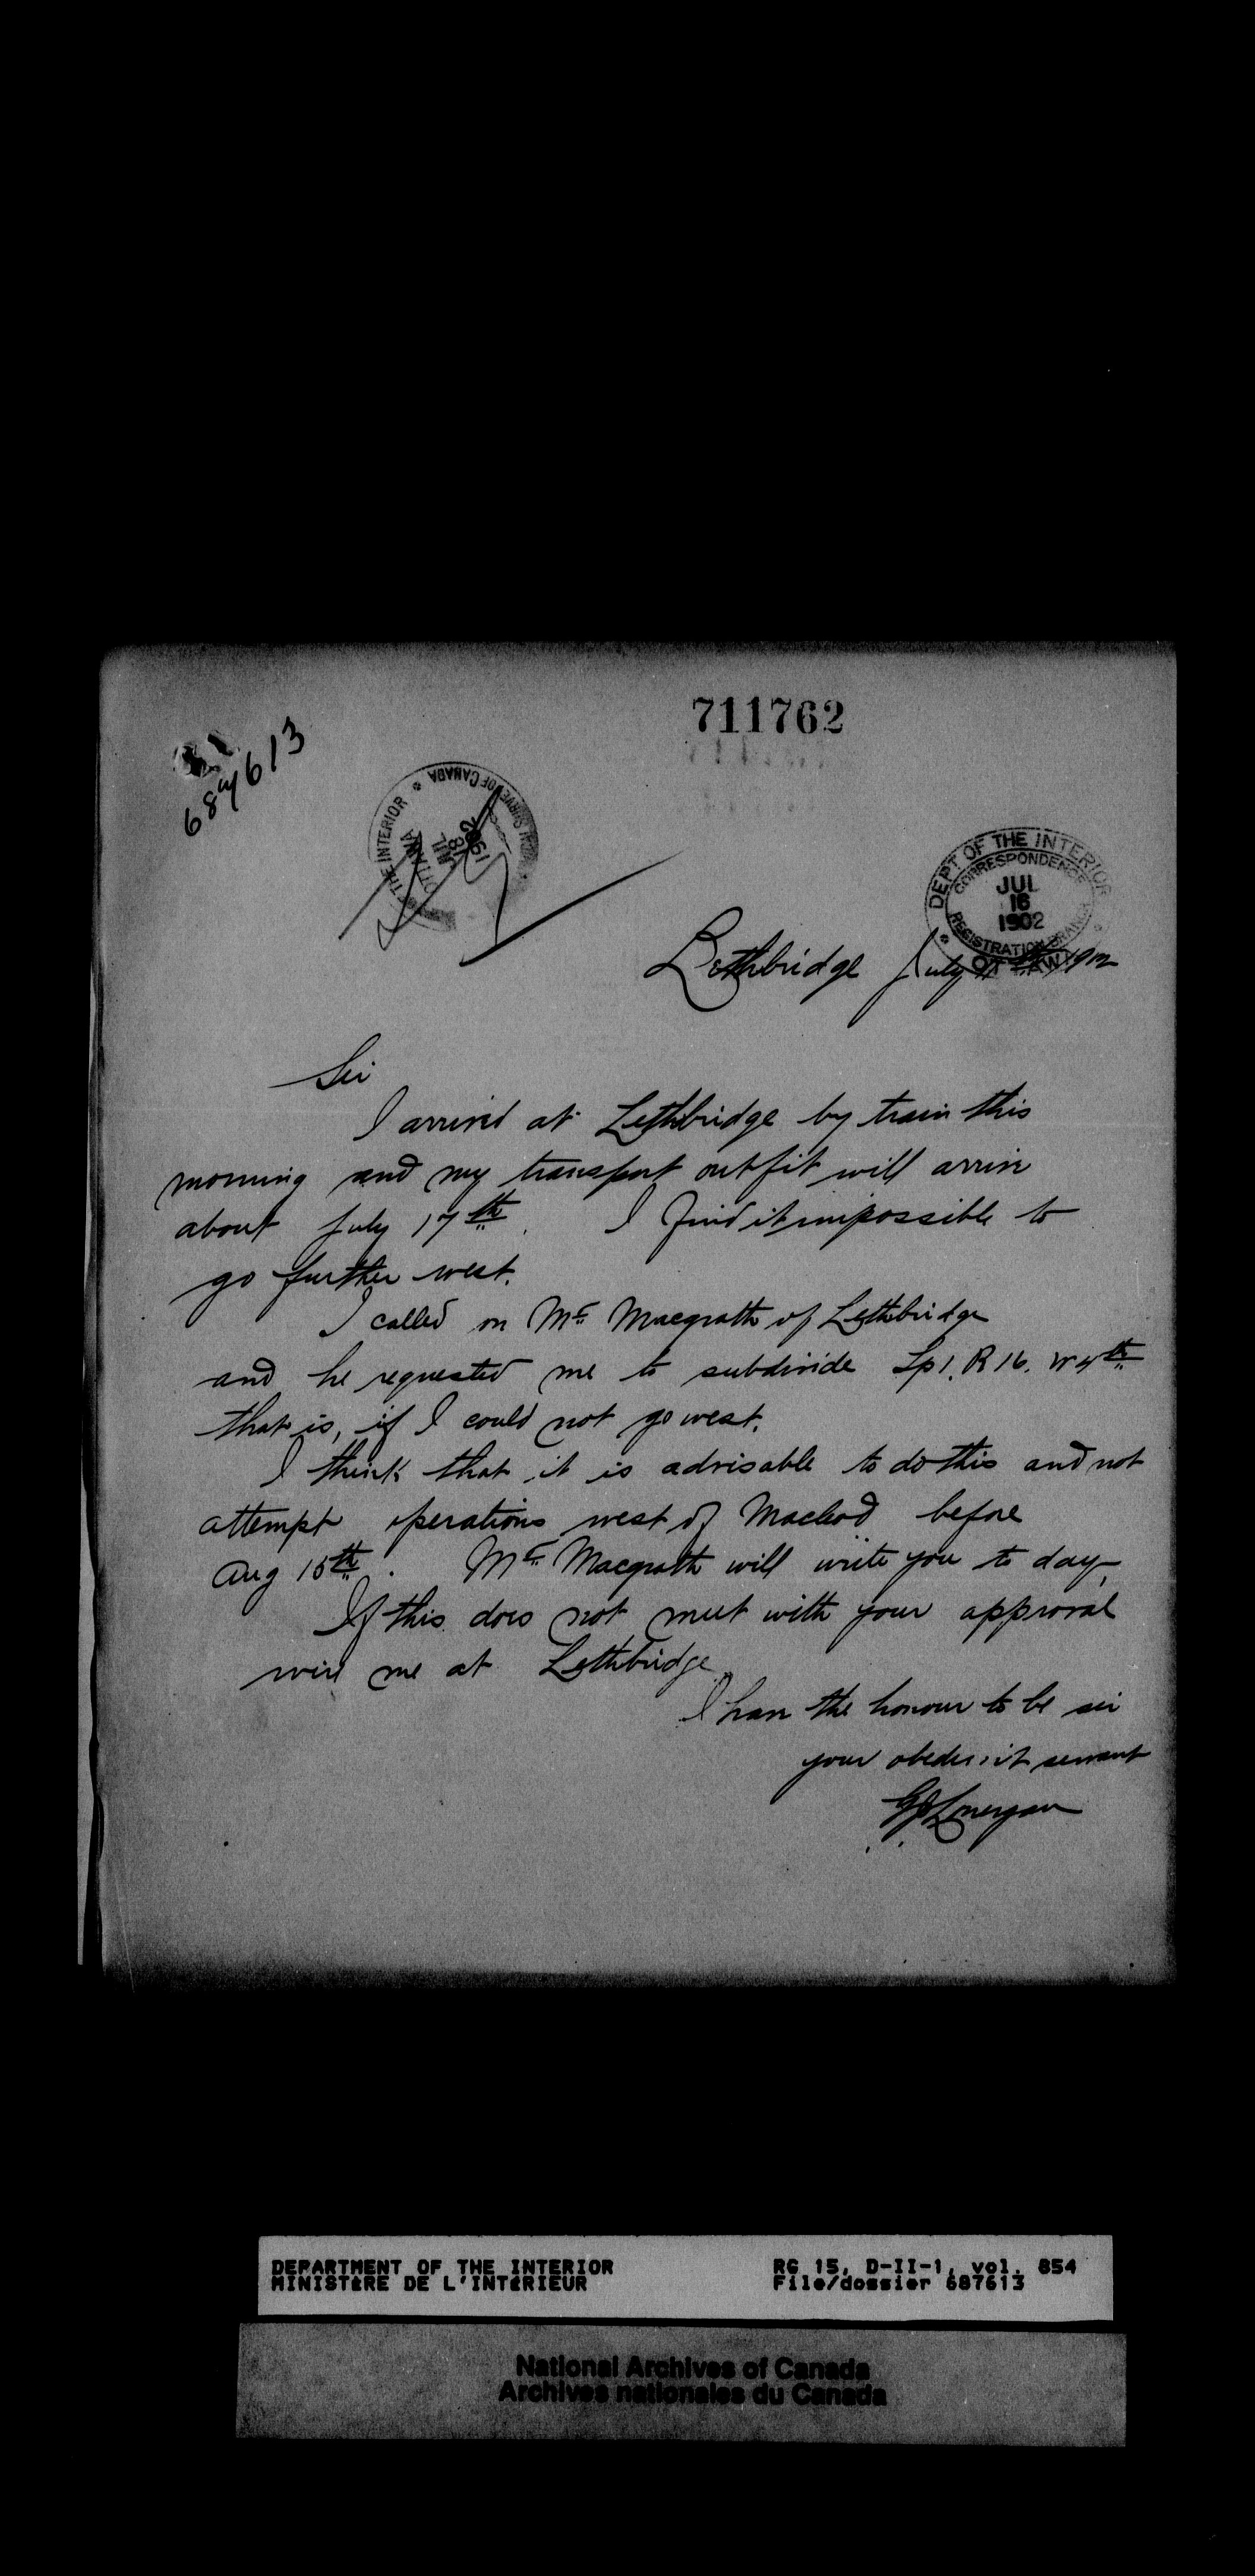 711762
687613
DEPT OF THE INTERIOR
CORRESPONDENCE
JUL
16
1902
REGISTRATION BRANCH
OTTAWA
THE INTERIOR
SURVEY OF CANADA
OTTAWA
JUL
18
1902
Lethbridge July 1902
Sir
I arrived at Lethbridge by train this
morning and my transport outfit will arrive
about July 17th. I find it impossible to
go further west.
I called on Mr Macgrath of Lethbridge
and he requested me to subdivide Tp 1. R 16. W 4th
that is, if I could not go west.
I think that it is advisable to do this and not
attempt operations west of Macleod before
Aug 15th. Mr Macgrath will write you to day.
If this does not meet with your approval
wire me at Lethbridge.
I have the honour to be sir
your obedient servant
Lonergan
DEPARTMENT OF THE INTERIOR RG 15, D-II-1, vol. 854
MINISTÈRE DE L'INTÉRIEUR File/dossier 687613
National Archives of Canada
Archives nationales du Canada